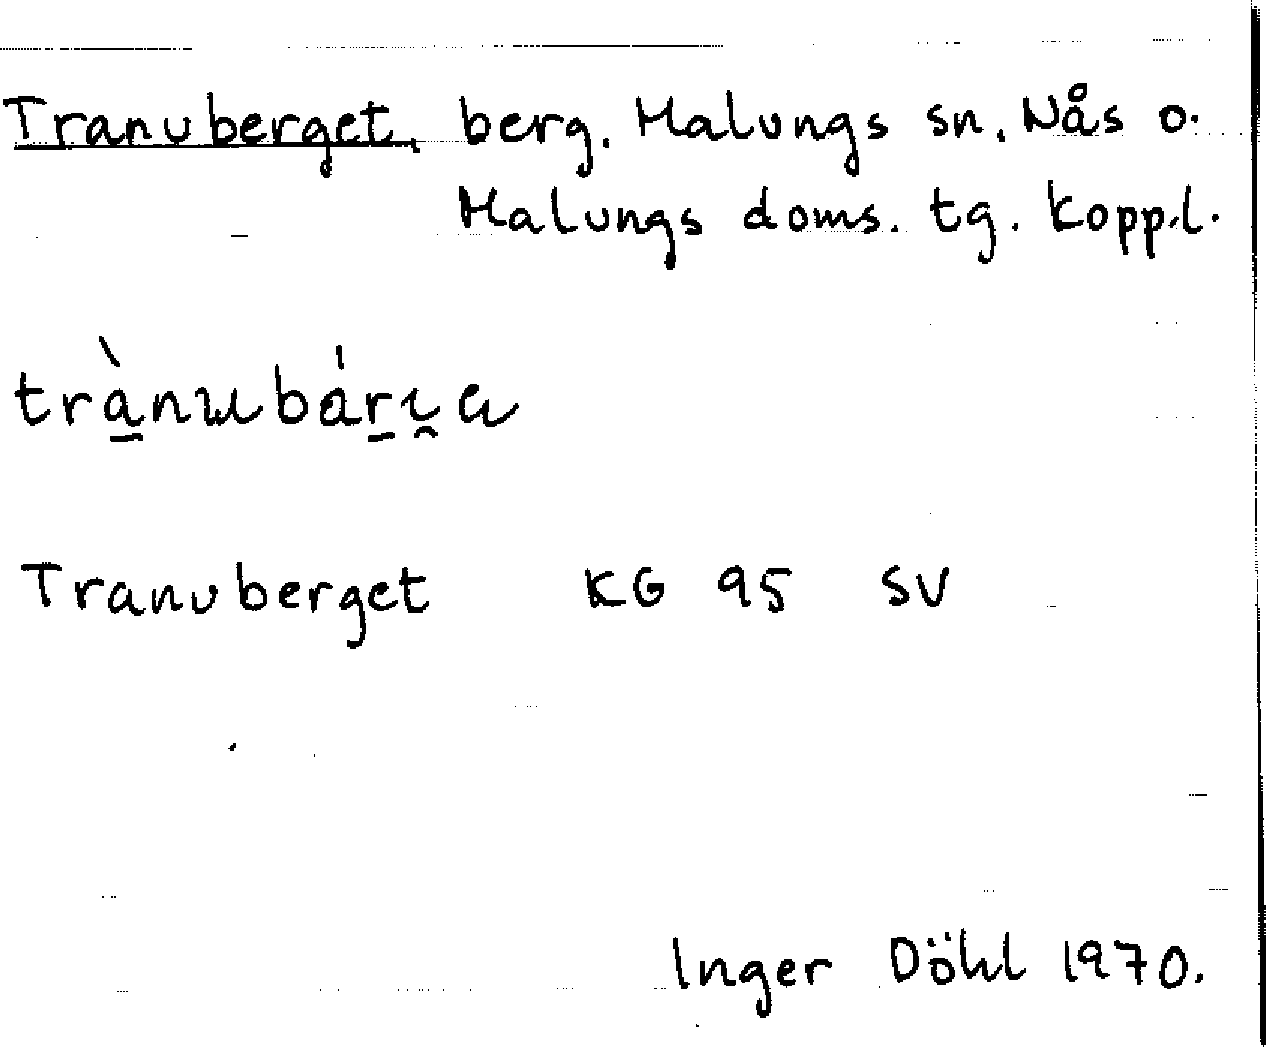 Tranuberget, berg. Malungs sn. Nås o.
Malungs doms. tg. Kopp.l.
Tranuberget KG 95 SV
Inger Döhl 1970.